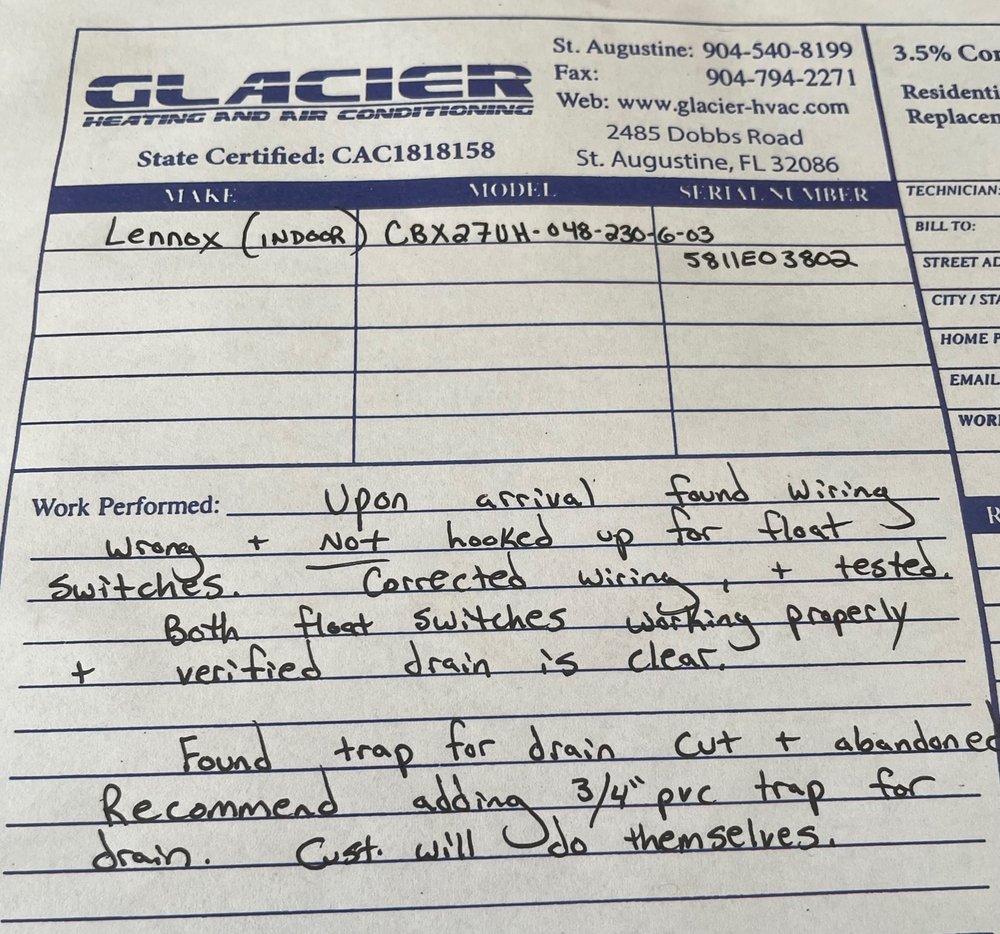 GLACIER
HEATING AND AIR CONDITIONING
State Certified: CAC1818158
St. Augustine: 904-540-8199
Fax: 904-794-2271
Web: www.glacier-hvac.com
2485 Dobbs Road
St. Augustine, FL 32086
3.5% Con
Residenti
Replacen
MAKE MODEL SERIAL NUMBER
TECHNICIAN:
BILL TO:
STREET AD
CITY / STA
HOME P
EMAIL
WORK
R
Lennox (INDOOR) CBX27UH-048-230-6-03
5811E03802
Work Performed: Upon arrival found wiring
wrong + NOT hooked up for float
switches. Corrected wiring, + tested.
Both float switches working properly
+ verified drain is clear.
Found trap for drain cut + abandoned
Recommend adding 3/4" pvc trap for
drain. Cust. will do themselves.